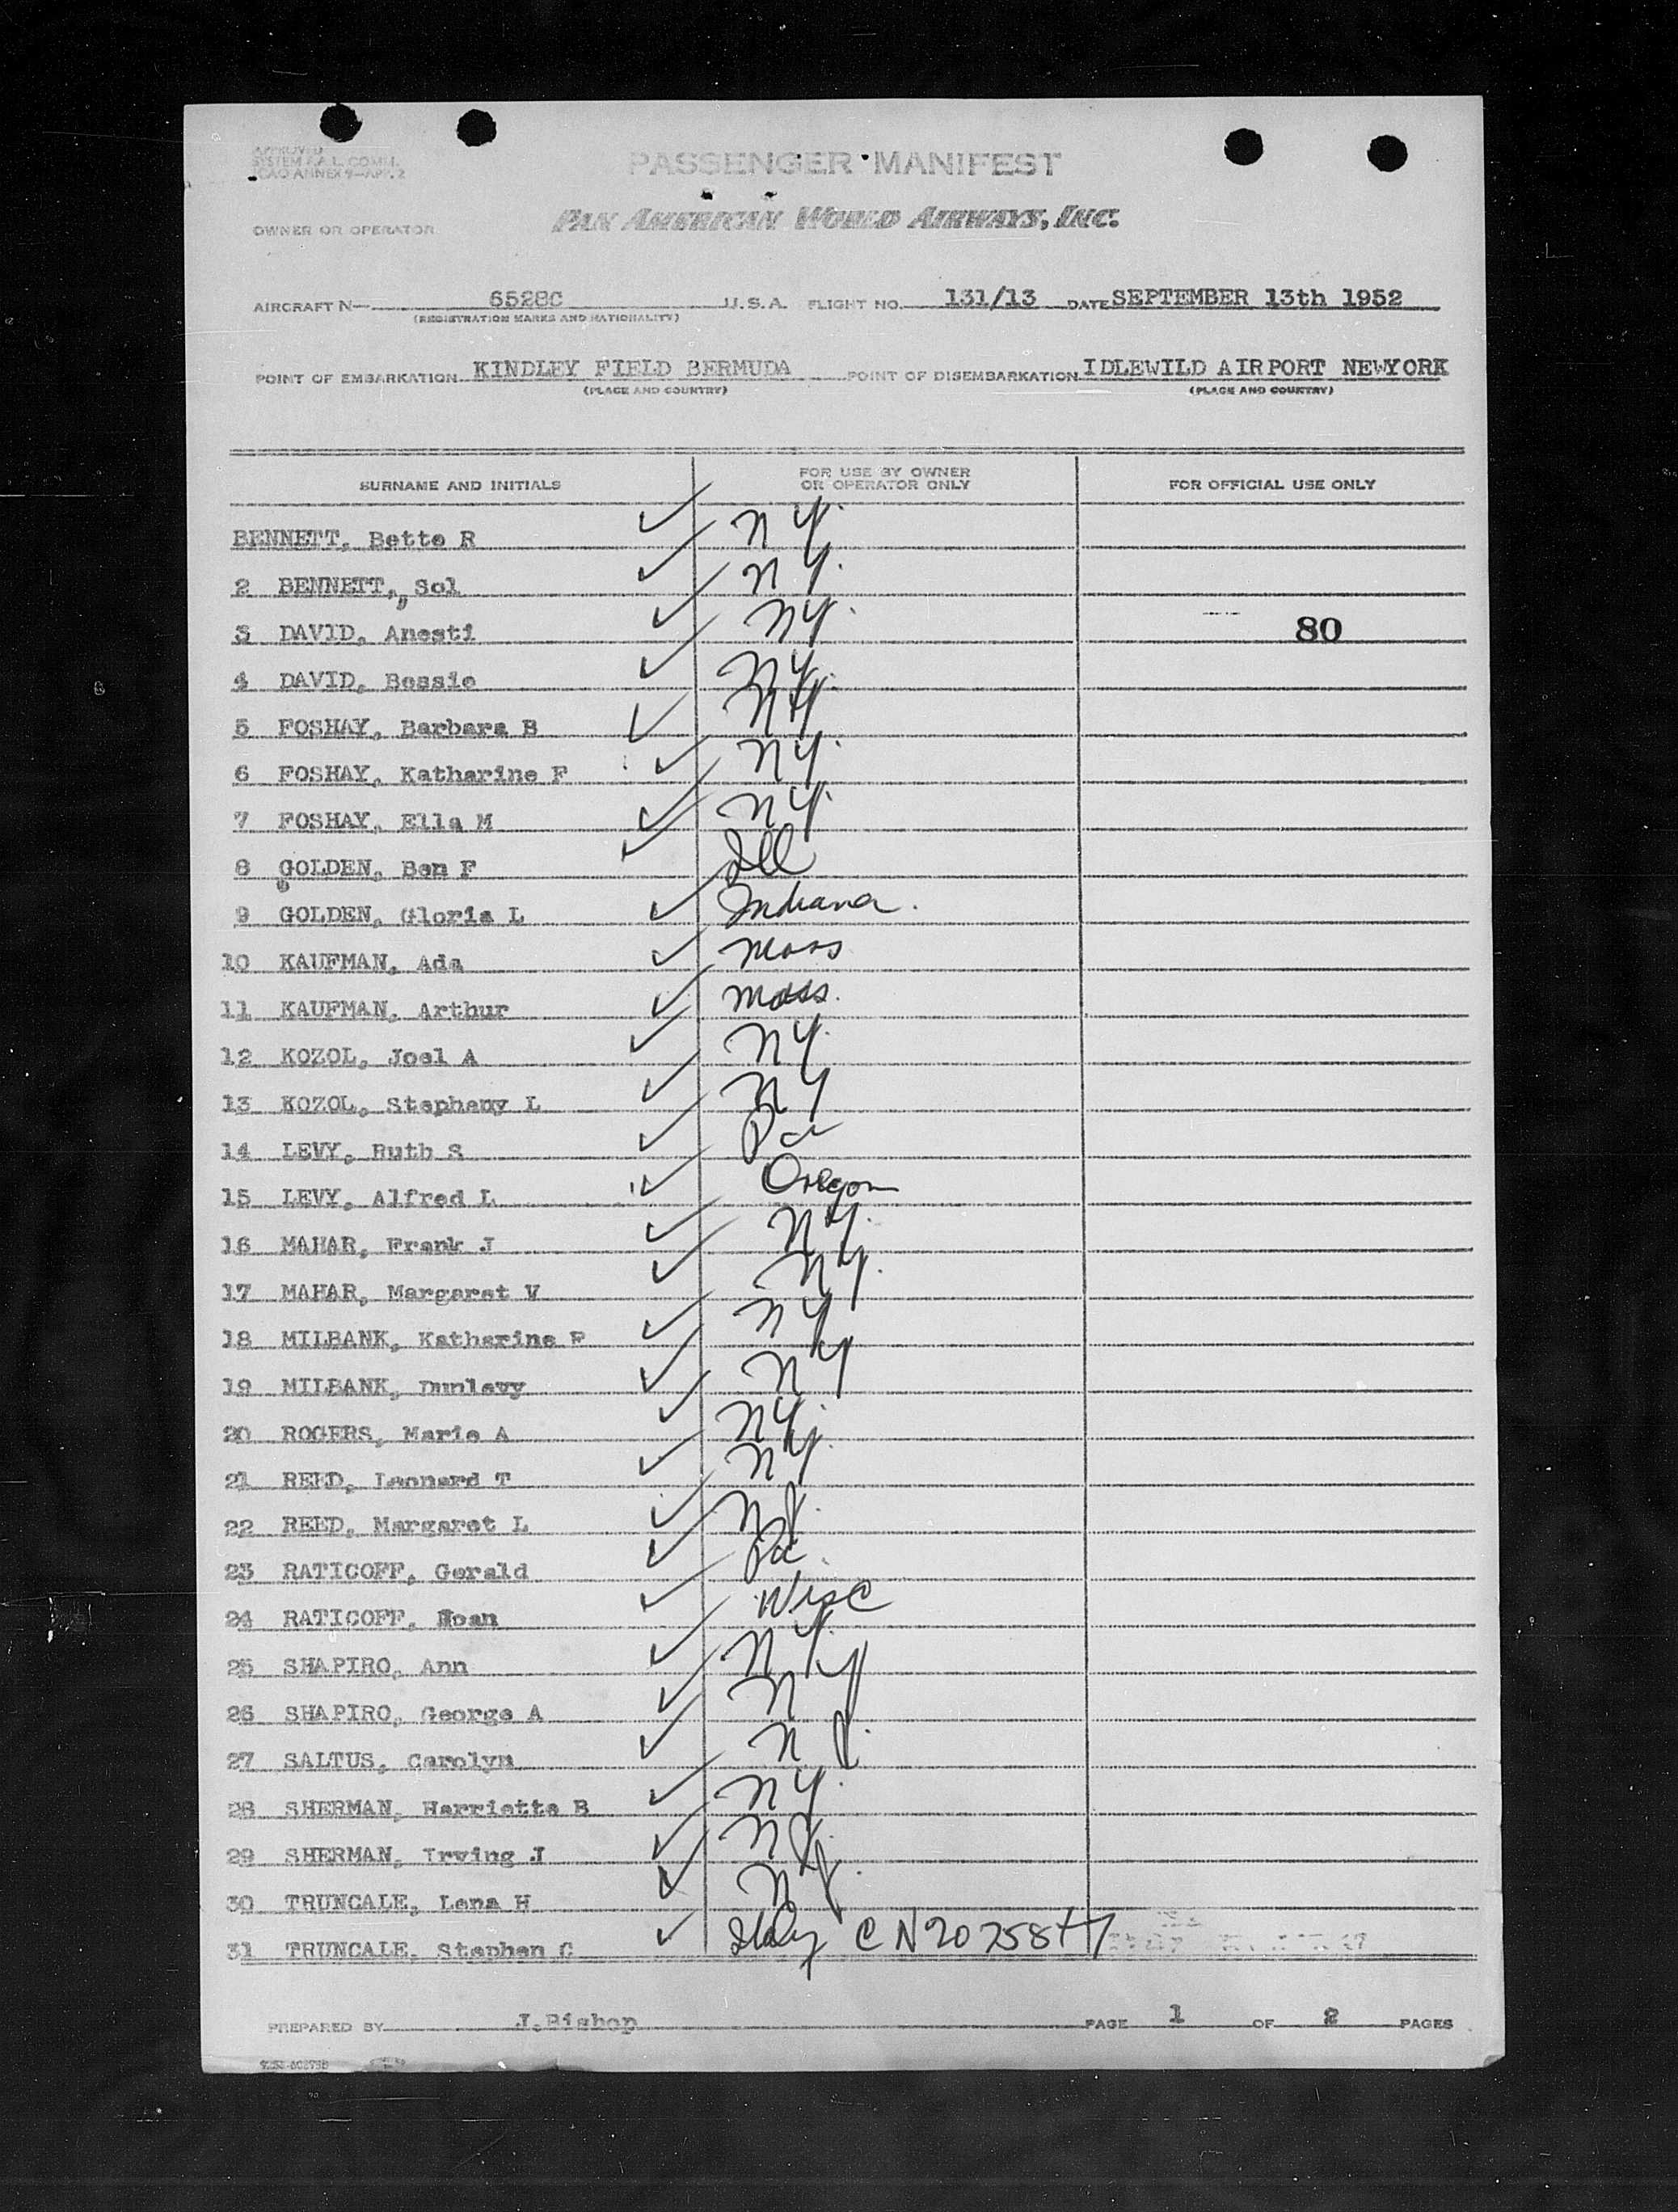 APPROVED
SYSTEM F.A.L. COMM.
ICAO ANNEX 9—APP. 2
PASSENGER MANIFEST
OWNER OR OPERATOR PAN AMERICAN WORLD AIRWAYS, INC.
AIRCRAFT N— 6528C U.S.A. FLIGHT NO. 131/13 DATE SEPTEMBER 13th 1952
(REGISTRATION MARKS AND NATIONALITY)
POINT OF EMBARKATION KINDLEY FIELD BERMUDA POINT OF DISEMBARKATION IDLEWILD AIRPORT NEWYORK
(PLACE AND COUNTRY) (PLACE AND COUNTRY)
SURNAME AND INITIALS FOR USE BY OWNER OR OPERATOR ONLY FOR OFFICIAL USE ONLY
BENNETT, Bette R ✓ N Y.
2 BENNETT, Sol ✓ N Y.
3 DAVID, Anesti ✓ N Y. 80
4 DAVID, Bessie ✓ N Y.
5 FOSHAY, Barbara B ✓ N Y.
6 FOSHAY, Katharine F ✓ N Y.
7 FOSHAY, Ella M ✓ N Y.
8 GOLDEN, Ben F ✓ Ill
9 GOLDEN, Gloria L ✓ Indiana.
10 KAUFMAN, Ada ✓ Mass
11 KAUFMAN, Arthur ✓ Mass.
12 KOZOL, Joel A ✓ N Y.
13 KOZOL, Stephany L ✓ N Y
14 LEVY, Ruth S ✓ Pa
15 LEVY, Alfred L ✓ Oregon
16 MAHAR, Frank J ✓ N Y.
17 MAHAR, Margaret V ✓ N Y.
18 MILBANK, Katharine P ✓ N Y
19 MILBANK, Dunlevy ✓ N Y
20 ROGERS, Marie A ✓ N Y.
21 REED, Leonard T ✓ N Y.
22 REED, Margaret L ✓ N J.
23 RATICOFF, Gerald ✓ Pa.
24 RATICOFF, ✓ Wisc
25 SHAPIRO, Ann ✓ N Y.
26 SHAPIRO, George A ✓ N Y
27 SALTUS, Carolyn ✓ N J.
28 SHERMAN, Harriette B ✓ N Y.
29 SHERMAN, Irving J ✓ N J.
30 TRUNCALE, Lena H ✓ N J.
31 TRUNCALE, Stephen C ✓ Italy C N 20
PREPARED BY J.Bishop PAGE 1 OF 2 PAGES